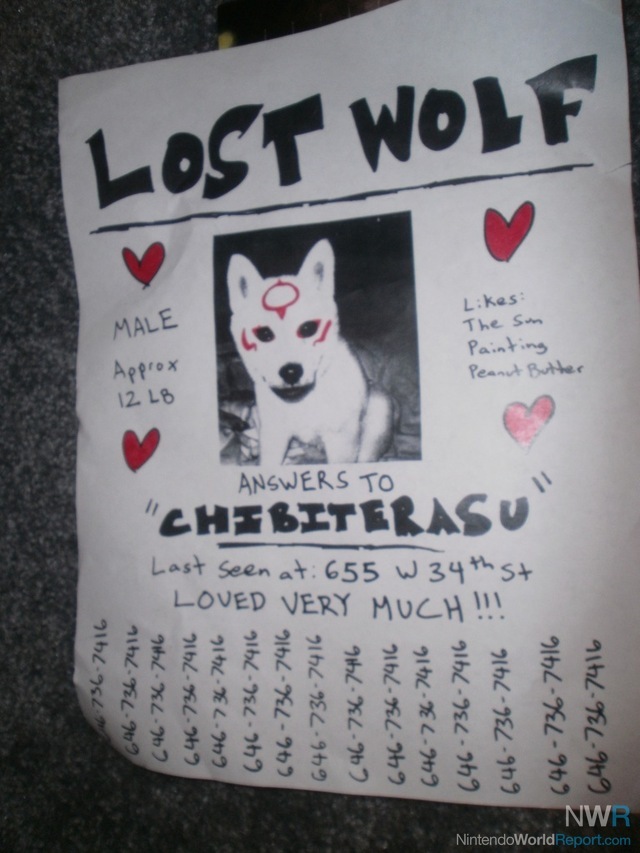 LOST WOLF
MALE
Approx
12 LB
Likes:
The Sun
Painting
Peanut Butter
ANSWERS TO
"CHIBITERASU"
Last seen at: 655 W 34th St
LOVED VERY MUCH!!!
646-736-7416
646-736-7416
646-736-746
646-736-7416
646-736-7416
646-736-7416
646-736-7416
646-736-7416
646-736-746
646-736-7416
646-736-7416
646-736-7416
646-736-7416
646-736-7416
646-736-7416
NWR
NintendoWorldReport.com